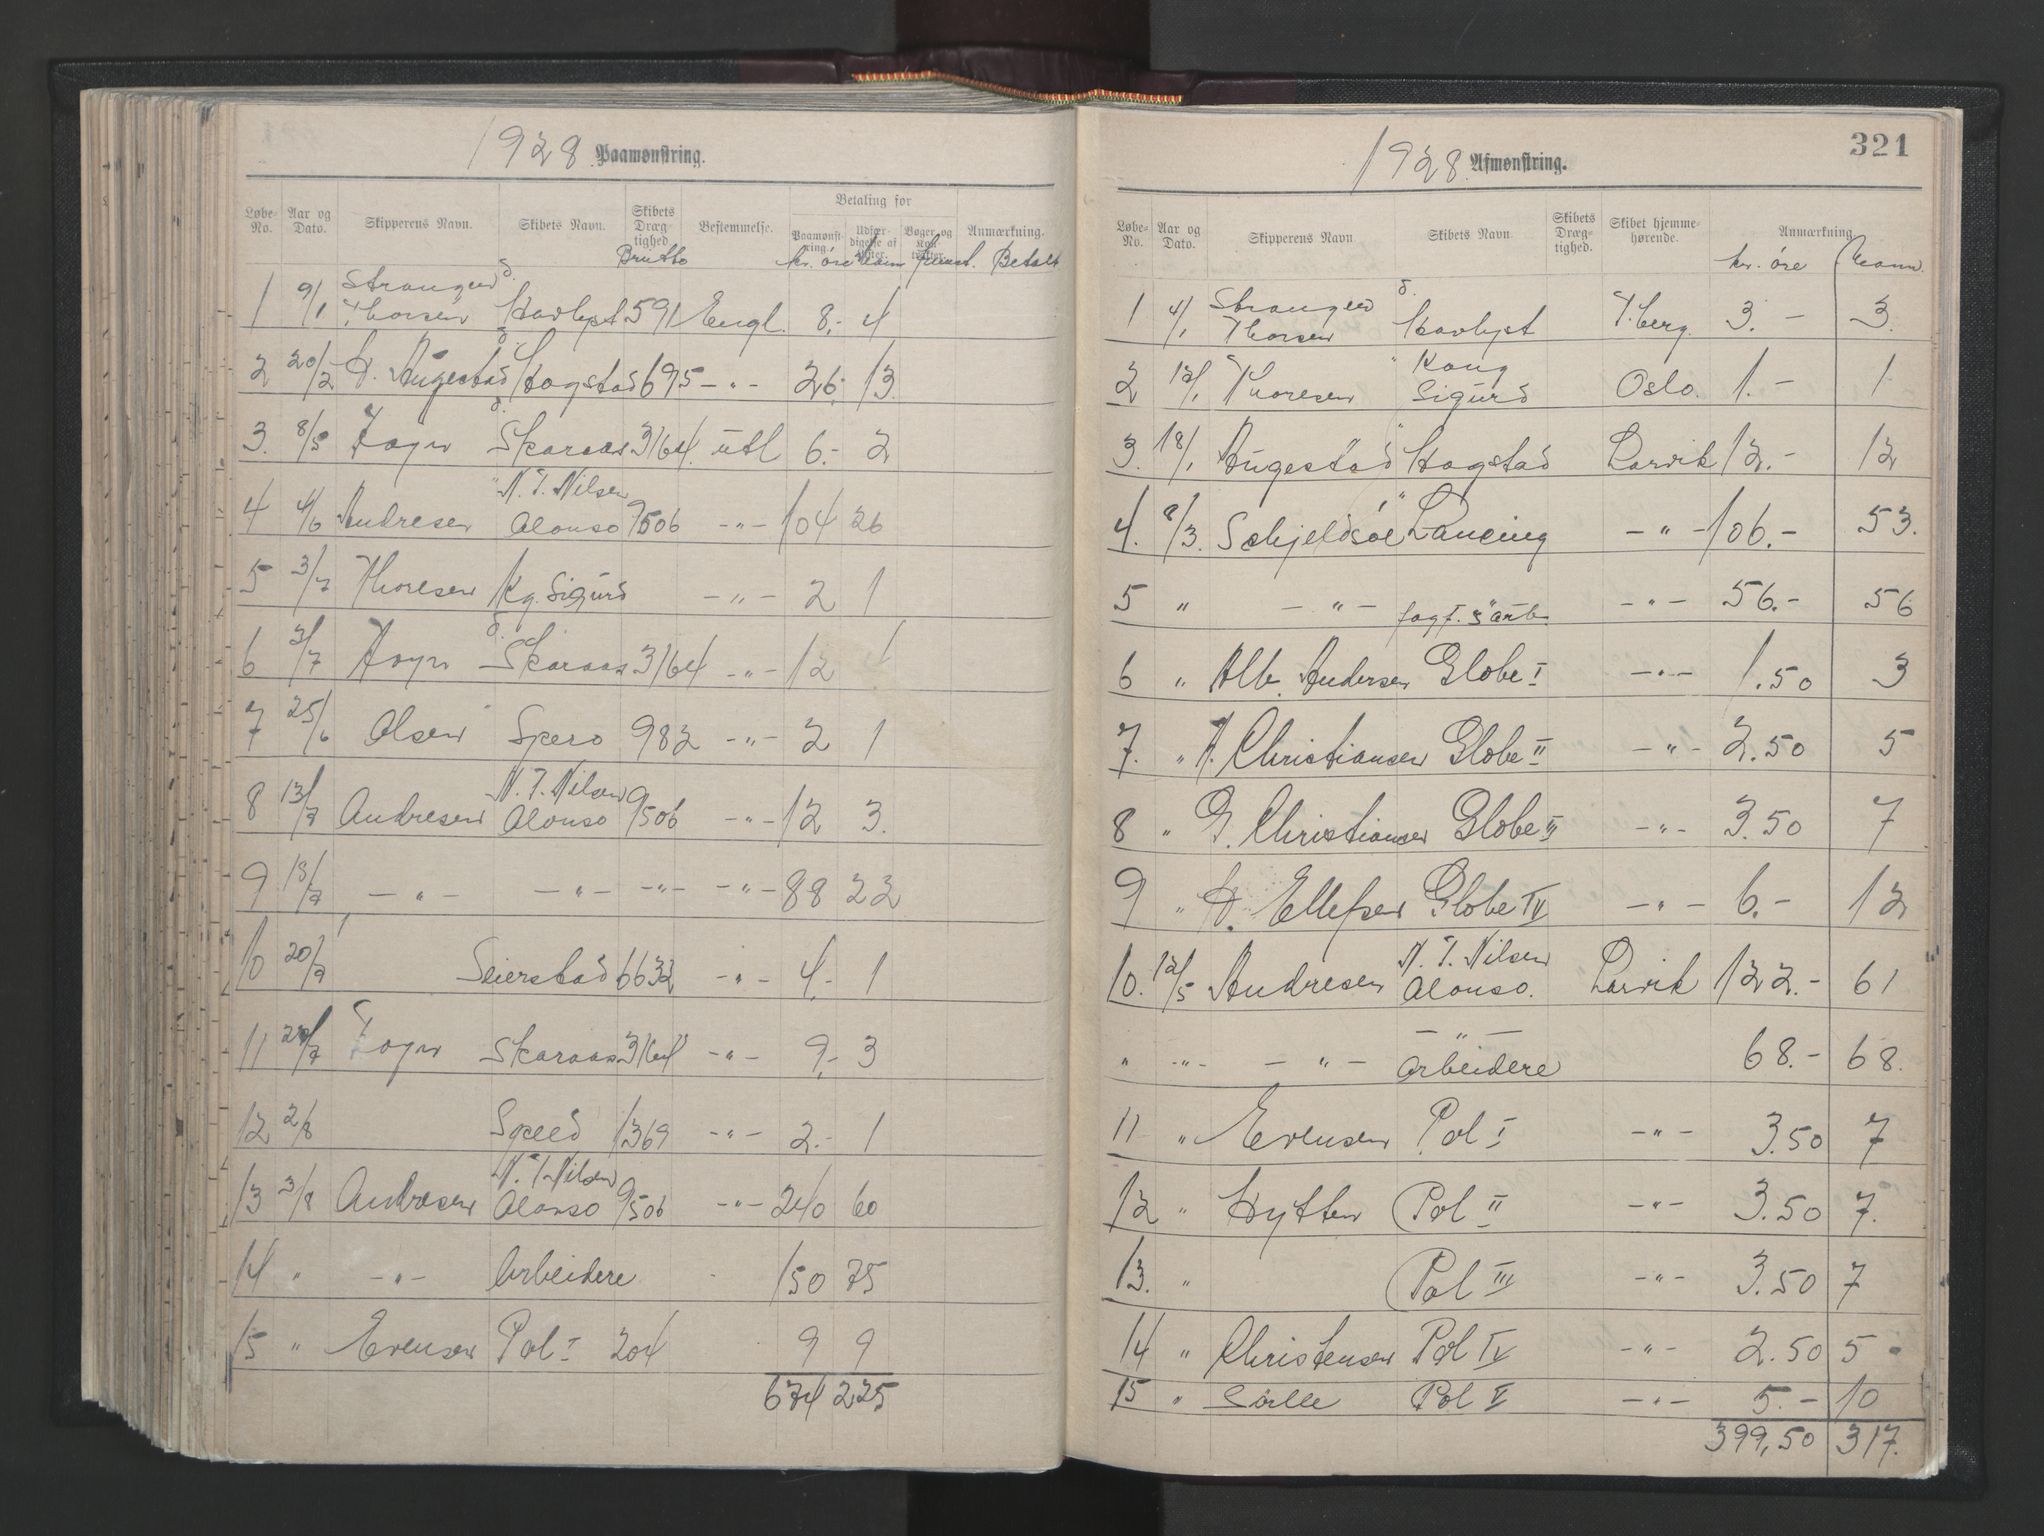 1928 Paamønstring.
Løbe-No. Aar og Dato. Skipperens Navn. Skibets Navn. Skibets Dræg-tighed. Bestemmelse. Betaling for Anmærkning.
Paamønst-ring. Udfær-digelse af Bøger og
Brutto kr. øre Betalt
Strangen d.
1 9/1 Thorsen Havlyst 591 Engl. 8.- 4
2 20/2 Augestad Hogstad 695 -"- 26.- 13.
3. 8/5 Fogn Skaraas 3164 utl 6.- 2
N. T. Nilsen
4 4/6 Andresen Alonso 7506 -"- 104 26
5 3/7 Thoresen Kg. Sigurd -"- 2 1
6 3/7 Fogn Skaraas 3164 -"- 12 1
7 25/6 Olsen Spero 982 -"- 2 1
N. T. Nilsen
8 13/7 Andresen Alonso 9506 -"- 12 3.
9 18/7 -"- -"- -"- -"- 88 22
10 20/7 Seierstad 6632 -"- 4.- 1
11 24/7 Fogn Skaraas 3164 -"- 9.- 3
12 2/8 Speed 1369 -"- 2.- 1
N. T. Nilsen
13 3/8 Andresen Alonso 9506 -"- 240 60
14 " -"- Arbeidere 150 75
15 " Evensen Pol I 204 9 9
674 225
321
1928 Afmønstring.
Løbe-No. Aar og Dato. Skipperens Navn Skibets Navn. Skibets Dræg-tighed. Skibet hjemme-hørende. Anmærkning
kr. øre Mann.
Strangen d.
1 4/1 Thorsen Havlyst T.berg. 3.- 3.
Kong
2 12/1 Thoresen Sigurd Oslo. 1.- 1
3. 18/1 Augestad Hogstad Larvik 12.- 12
4. 8/3. Schjeldsøe Lancing -"- 106.- 53.
5 " -"- fagf. & arb. -"- 56.- 56
6 " Alb. Andersen Globe I -"- 1.50 3
7. " A. Christiansen Globe II -"- 2.50 5
8 " G. Christiansen Globe III -"- 3.50 7
9 " Ellefsen Globe IV -"- 6.- 12
N. T. Nilsen
10. 12/5 Andresen Alonso. Larvik 122.- 61
-"-
" -"- -"- arbeidere 68.- 68.
11 " Evensen Pol I -"- 3.50 7
12 " Hytten Pol II -"- 3.50 7.
13. " Pol III -"- 3.50 7
14 " Christensen Pol IV -"- 2.50 5
15 " Sørlle Pol V -"- 5.- 10
399,50 317.